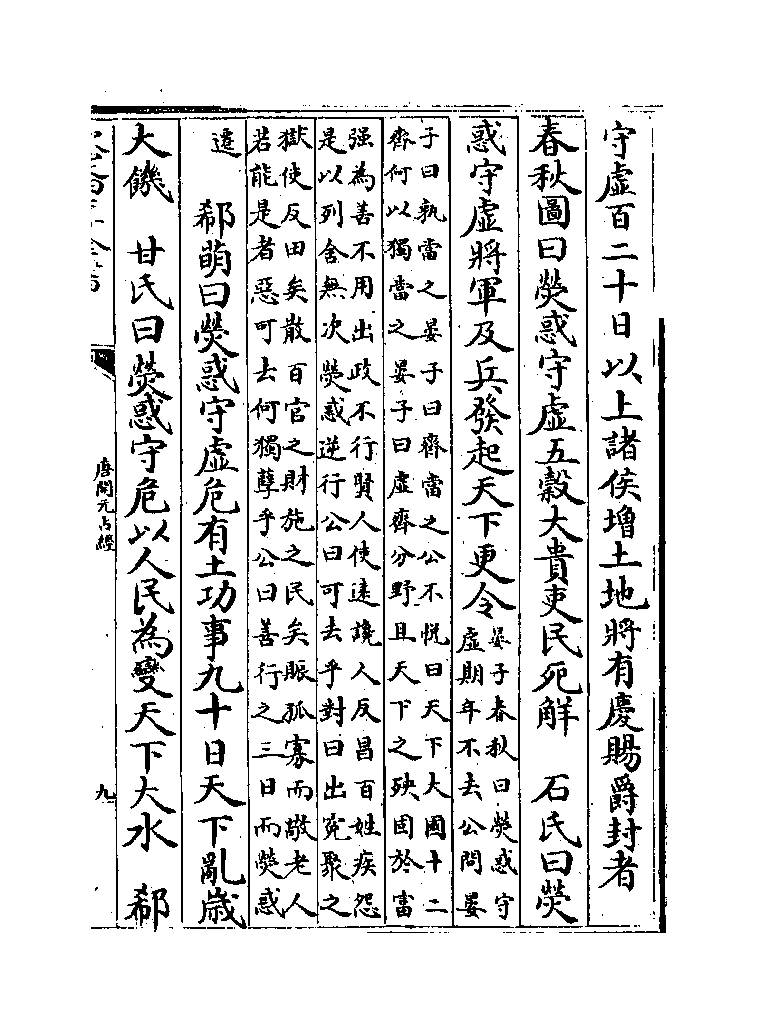 守虚百二十日以上諸侯増土地將有慶賜爵封者
春秋圖曰熒惑守虚五穀大貴吏民死解　石氏曰熒
惑守虚將軍及兵發起天下更令晏子春秋曰熒惑守
虚期年不去公問晏
子曰孰當之晏子曰齊當之公不悦曰天下大國十二
齊何以獨當之晏子曰虚齊分野且天下之殃固於富
强為善不用出政不行賢人使逺讒人反昌百姓疾怨
是以列舍無次熒惑逆行公曰可去乎對曰出寃聚之
獄使反田矣散百官之財施之民矣賑孤寡而敬老人
若能是者惡可去何獨孽乎公曰善行之三日而熒惑
遷　郗萌曰熒惑守虚危有土功事九十日天下亂歳
大饑　甘氏曰熒惑守危以人民為變天下大水　郗
唐開元占經
九